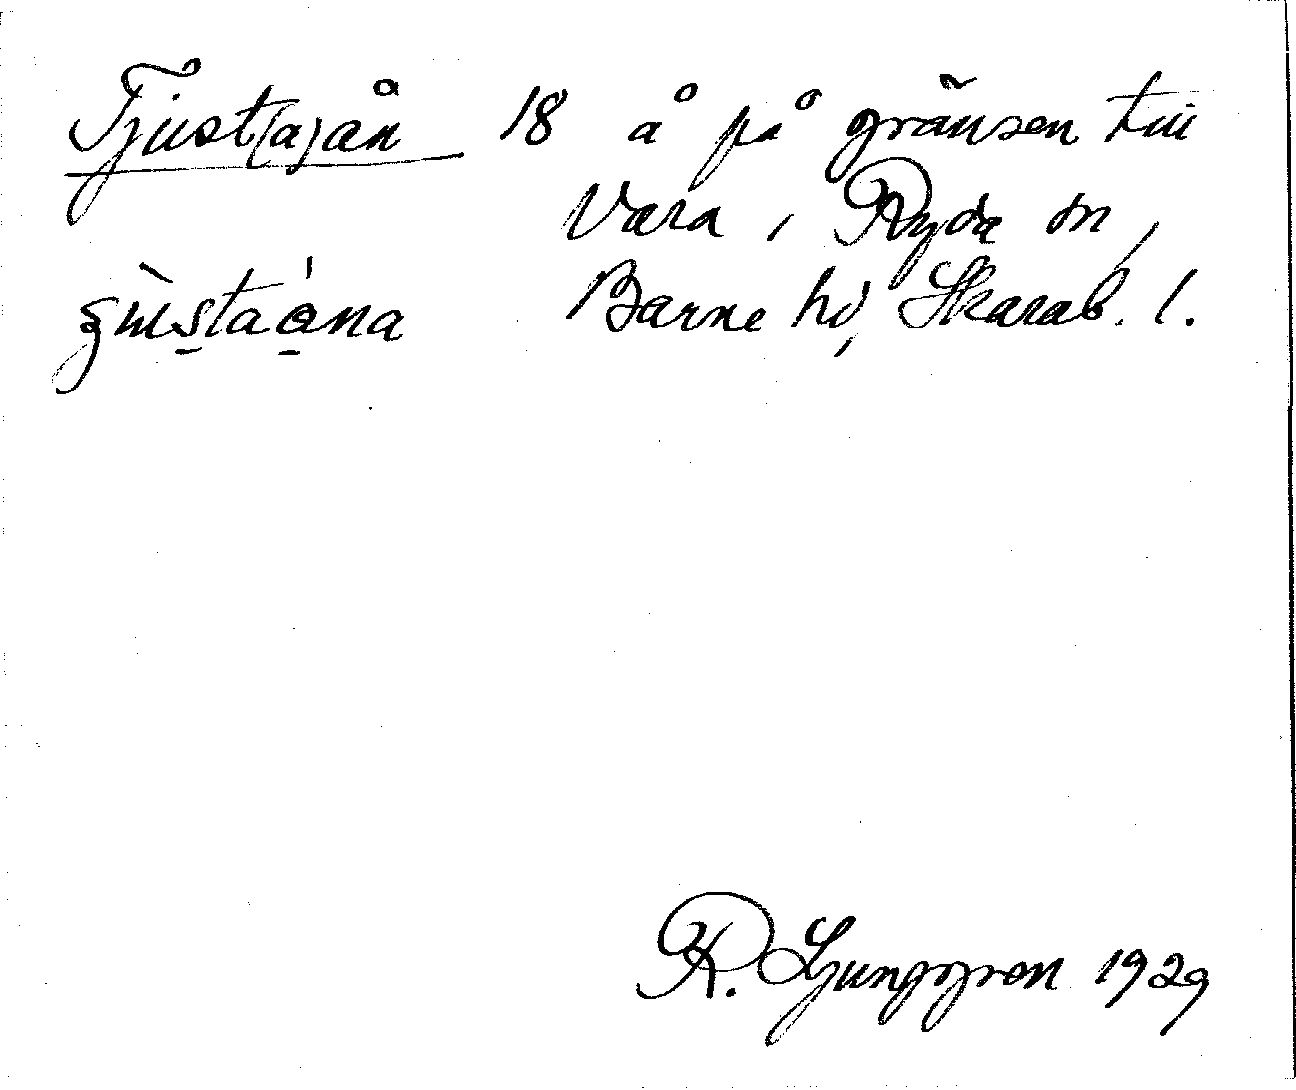 Tjust(a)ån 18 å på gränsen till
Vara, Ryda sn,
Barne hd, Skarab. l.
R. Ljunggren 1929